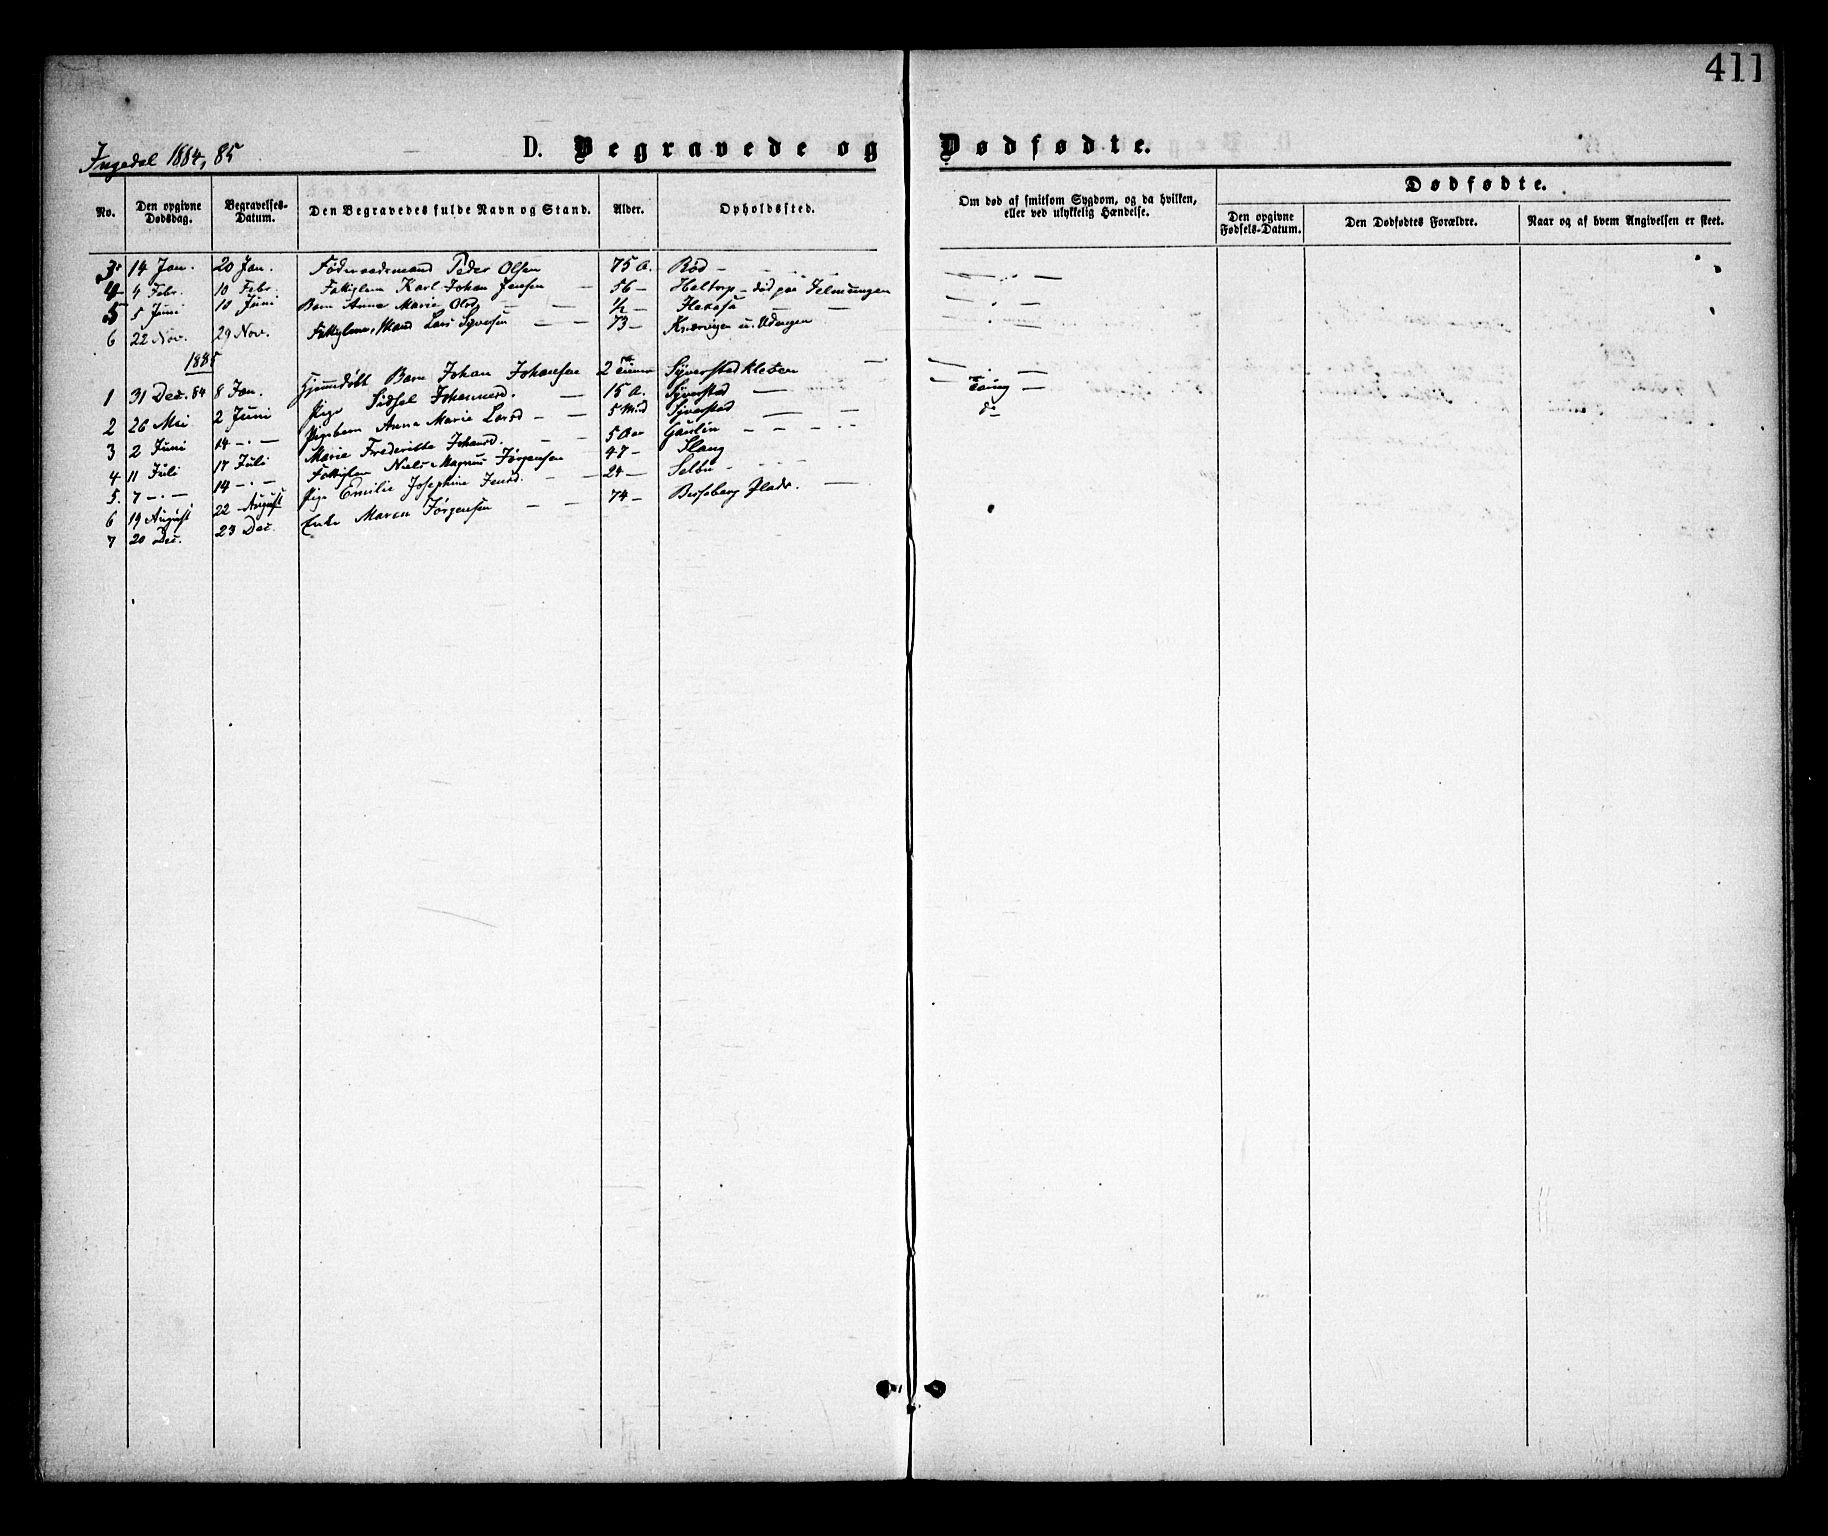 411
Ingedal 1884, 85
D. Begravede og Dødfødte.
No.
Den opgivne Dødsdag.
Begravelses-Datum.
Den Begravedes fulde Navn og Stand.
Alder.
Opholdssted.
Om død af smitsom Sygdom, og da hvilken, eller ved ulykkelig Hændelse.
Dødfødte.
Den opgivne Fødsels-Datum.
Den Dødfødtes Forældre.
Naar og af hvem Angivelsen er skeet.
3 14 Jan. 20 Jan. Føderaadsmand Peder Olsen 75 A. Röd —
4 4 Febr. 10 Febr. Fattiglem Karl Johan Jensen — 56 — Heltorp — död paa
5 5 Juni 10 Juni Barn Anna Marie Olsd — — 1/2 —
6 22 Nov. 29 Nov. Fattiglem, Mand Lars Syversen — — 73 — u. Udengen
1885
1 31 Dec. 84 8 Jan. Hjemmedöbt Barn Johan Johansen 2 Timer Syverstadkleven
2 26 Mai 2 Juni Pige Sidsel Johannesd. — 15 A. Syverstad — Tæring
3 2 Juni 14 — . — Pigebarn Anna Marie Larsd — — 5 Mnd Syverstad — do
4 11 Juli 17 Juli Marie Fredrikke Johansd. — — 5 Aar
5. 7 — . — 14 — . — Fattiglem Niels Magnus Jørgensen 47 — Slang
6 19 August 22 August Pige Emilie Josephine Jensd. — — 24 — Selbu
7 20 Dec. 23 Dec. Enke Maren Jørgensen — — 74 — Berseberg Plads. —